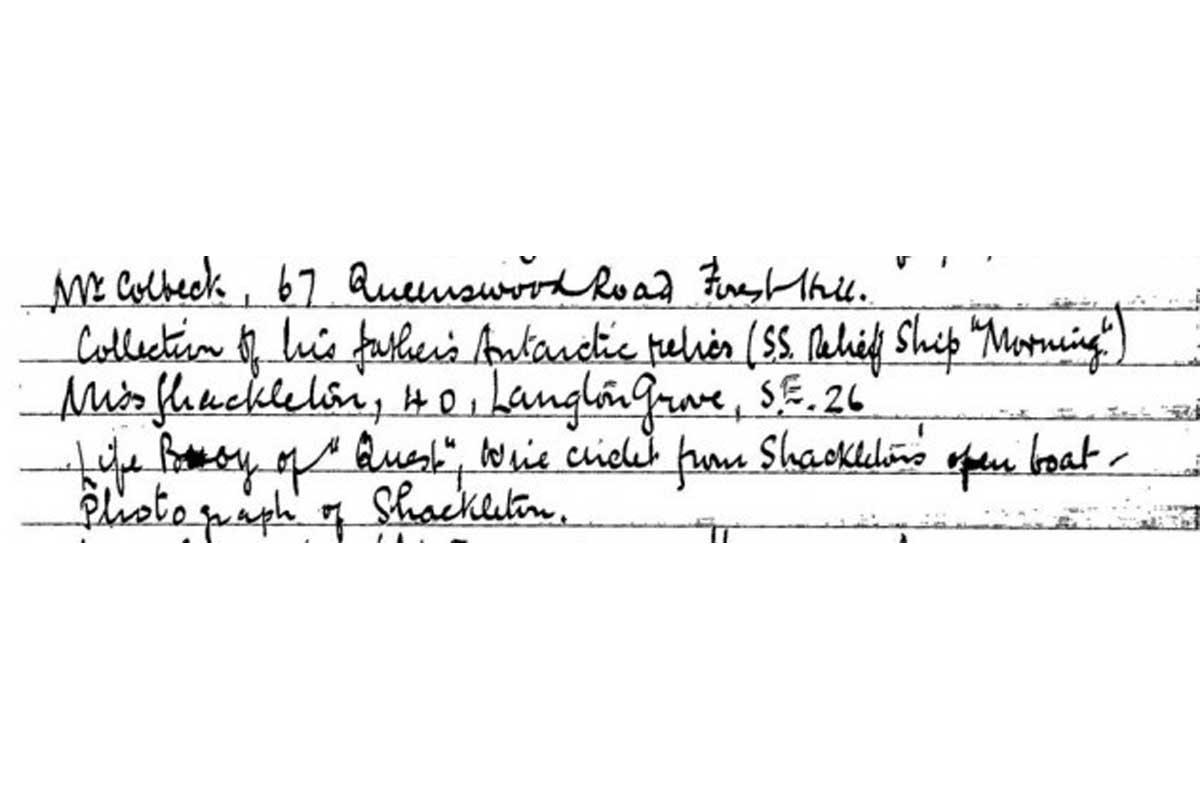 Mr Colbeck, 67 Queenswood Road Forest Hill.
Collection of his father's Antarctic relics (S.S. Relief Ship "Morning")
Miss Shackleton, 40, Langton Grove, S.E. 26
Life Buoy of "Quest", Wire circlet from Shackleton's open boat -
Photograph of Shackleton.